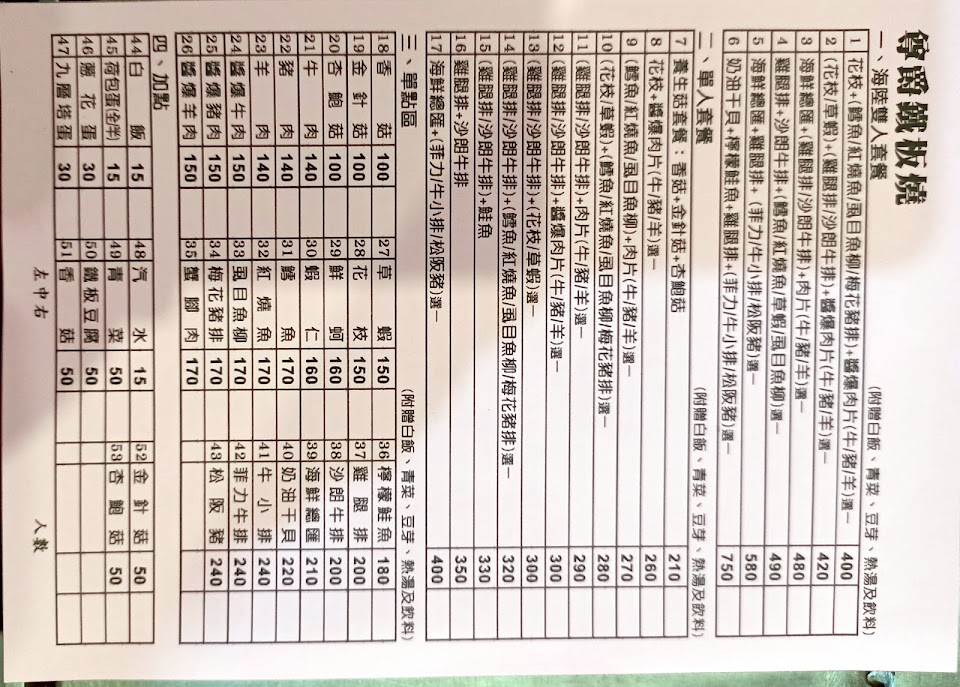 尊爵鐵板燒
一、海陸雙人套餐 (附贈白飯、青菜、豆芽、熱湯及飲料)
1 花枝+(鱈魚/紅燒魚/虱目魚柳/梅花豬排)+醬爆肉片(牛/豬/羊)選一 400
2 (花枝/草蝦)+(雞腿排/沙朗牛排)+醬爆肉片(牛/豬/羊)選一 420
3 海鮮總匯+(雞腿排/沙朗牛排)+肉片(牛/豬/羊)選一 480
4 雞腿排+沙朗牛排+(鱈魚/紅燒魚/草蝦/虱目魚柳)選一 490
5 海鮮總匯+雞腿排+(菲力/牛小排/松阪豬)選一 580
6 奶油干貝+檸檬鮭魚+雞腿排+(菲力/牛小排/松阪豬)選一 750
二、單人套餐 (附贈白飯、青菜、豆芽、熱湯及飲料)
7 養生菇套餐：香菇+金針菇+杏鮑菇 210
8 花枝+醬爆肉片(牛/豬/羊)選一 260
9 (鱈魚/紅燒魚/虱目魚柳)+肉片(牛/豬/羊)選一 270
10 (花枝/草蝦)+(鱈魚/紅燒魚/虱目魚柳/梅花豬排)選一 280
11 (雞腿排/沙朗牛排)+肉片(牛/豬/羊)選一 290
12 (雞腿排/沙朗牛排)+醬爆肉片(牛/豬/羊)選一 300
13 (雞腿排/沙朗牛排)+(花枝/草蝦)選一 300
14 (雞腿排/沙朗牛排)+(鱈魚/紅燒魚/虱目魚柳/梅花豬排)選一 320
15 (雞腿排/沙朗牛排)+鮭魚 330
16 雞腿排+沙朗牛排 350
17 海鮮總匯+(菲力/牛小排/松阪豬)選一 400
三、單點區 (附贈白飯、青菜、豆芽、熱湯及飲料)
18 香菇 100 27 草蝦 150 36 檸檬鮭魚 180
19 金針菇 100 28 花枝 150 37 雞腿排 200
20 杏鮑菇 100 29 鮮蚵 160 38 沙朗牛排 200
21 牛肉 140 30 蝦仁 160 39 海鮮總匯 210
22 豬肉 140 31 鱈魚 170 40 奶油干貝 220
23 羊肉 140 32 紅燒魚 170 41 牛小排 240
24 醬爆牛肉 150 33 虱目魚柳 170 42 菲力牛排 240
25 醬爆豬肉 150 34 梅花豬排 170 43 松阪豬 240
26 醬爆羊肉 150 35 蟹腳肉 170
四、加點
44 白飯 15 48 汽水 15 52 金針菇 50
45 荷包蛋(全/半) 15 49 青菜 50 53 杏鮑菇 50
46 蔥花蛋 30 50 鐵板豆腐 50
47 九層塔蛋 30 51 香菇 50
左 中 右 人數